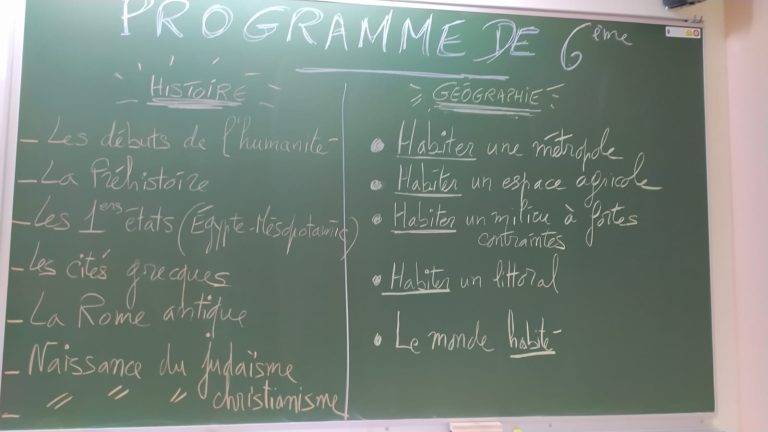 PROGRAMME DE 6ème
HISTOIRE
- Les débuts de l'humanité
- La Préhistoire
- Les 1ers états (Égypte-Mésopotamie)
- Les cités grecques
- La Rome antique
- Naissance du judaïsme
- " " " christianisme
GÉOGRAPHIE
• Habiter une métropole
• Habiter un espace agricole
• Habiter un milieu à fortes
contraintes
• Habiter un littoral
• Le monde habité